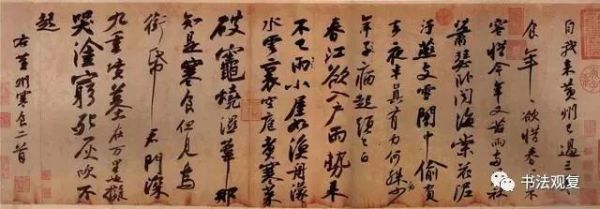 自我來黃州已過三寒
食年、欲惜春春去不
容惜今年又苦雨兩月秋
蕭瑟臥聞海棠花泥
汙燕支雪闇中偷負
去夜半真有力何殊少
年子病起頭已白
春江欲入戶雨勢來
不已雨小屋如漁舟濛
水雲裏空庖煮寒菜
破竈燒濕葦那
知是寒食但見烏
銜帋君門深
九重墳墓在萬里也擬
哭塗窮死灰吹不
起
右黃州寒食二首
书法观复